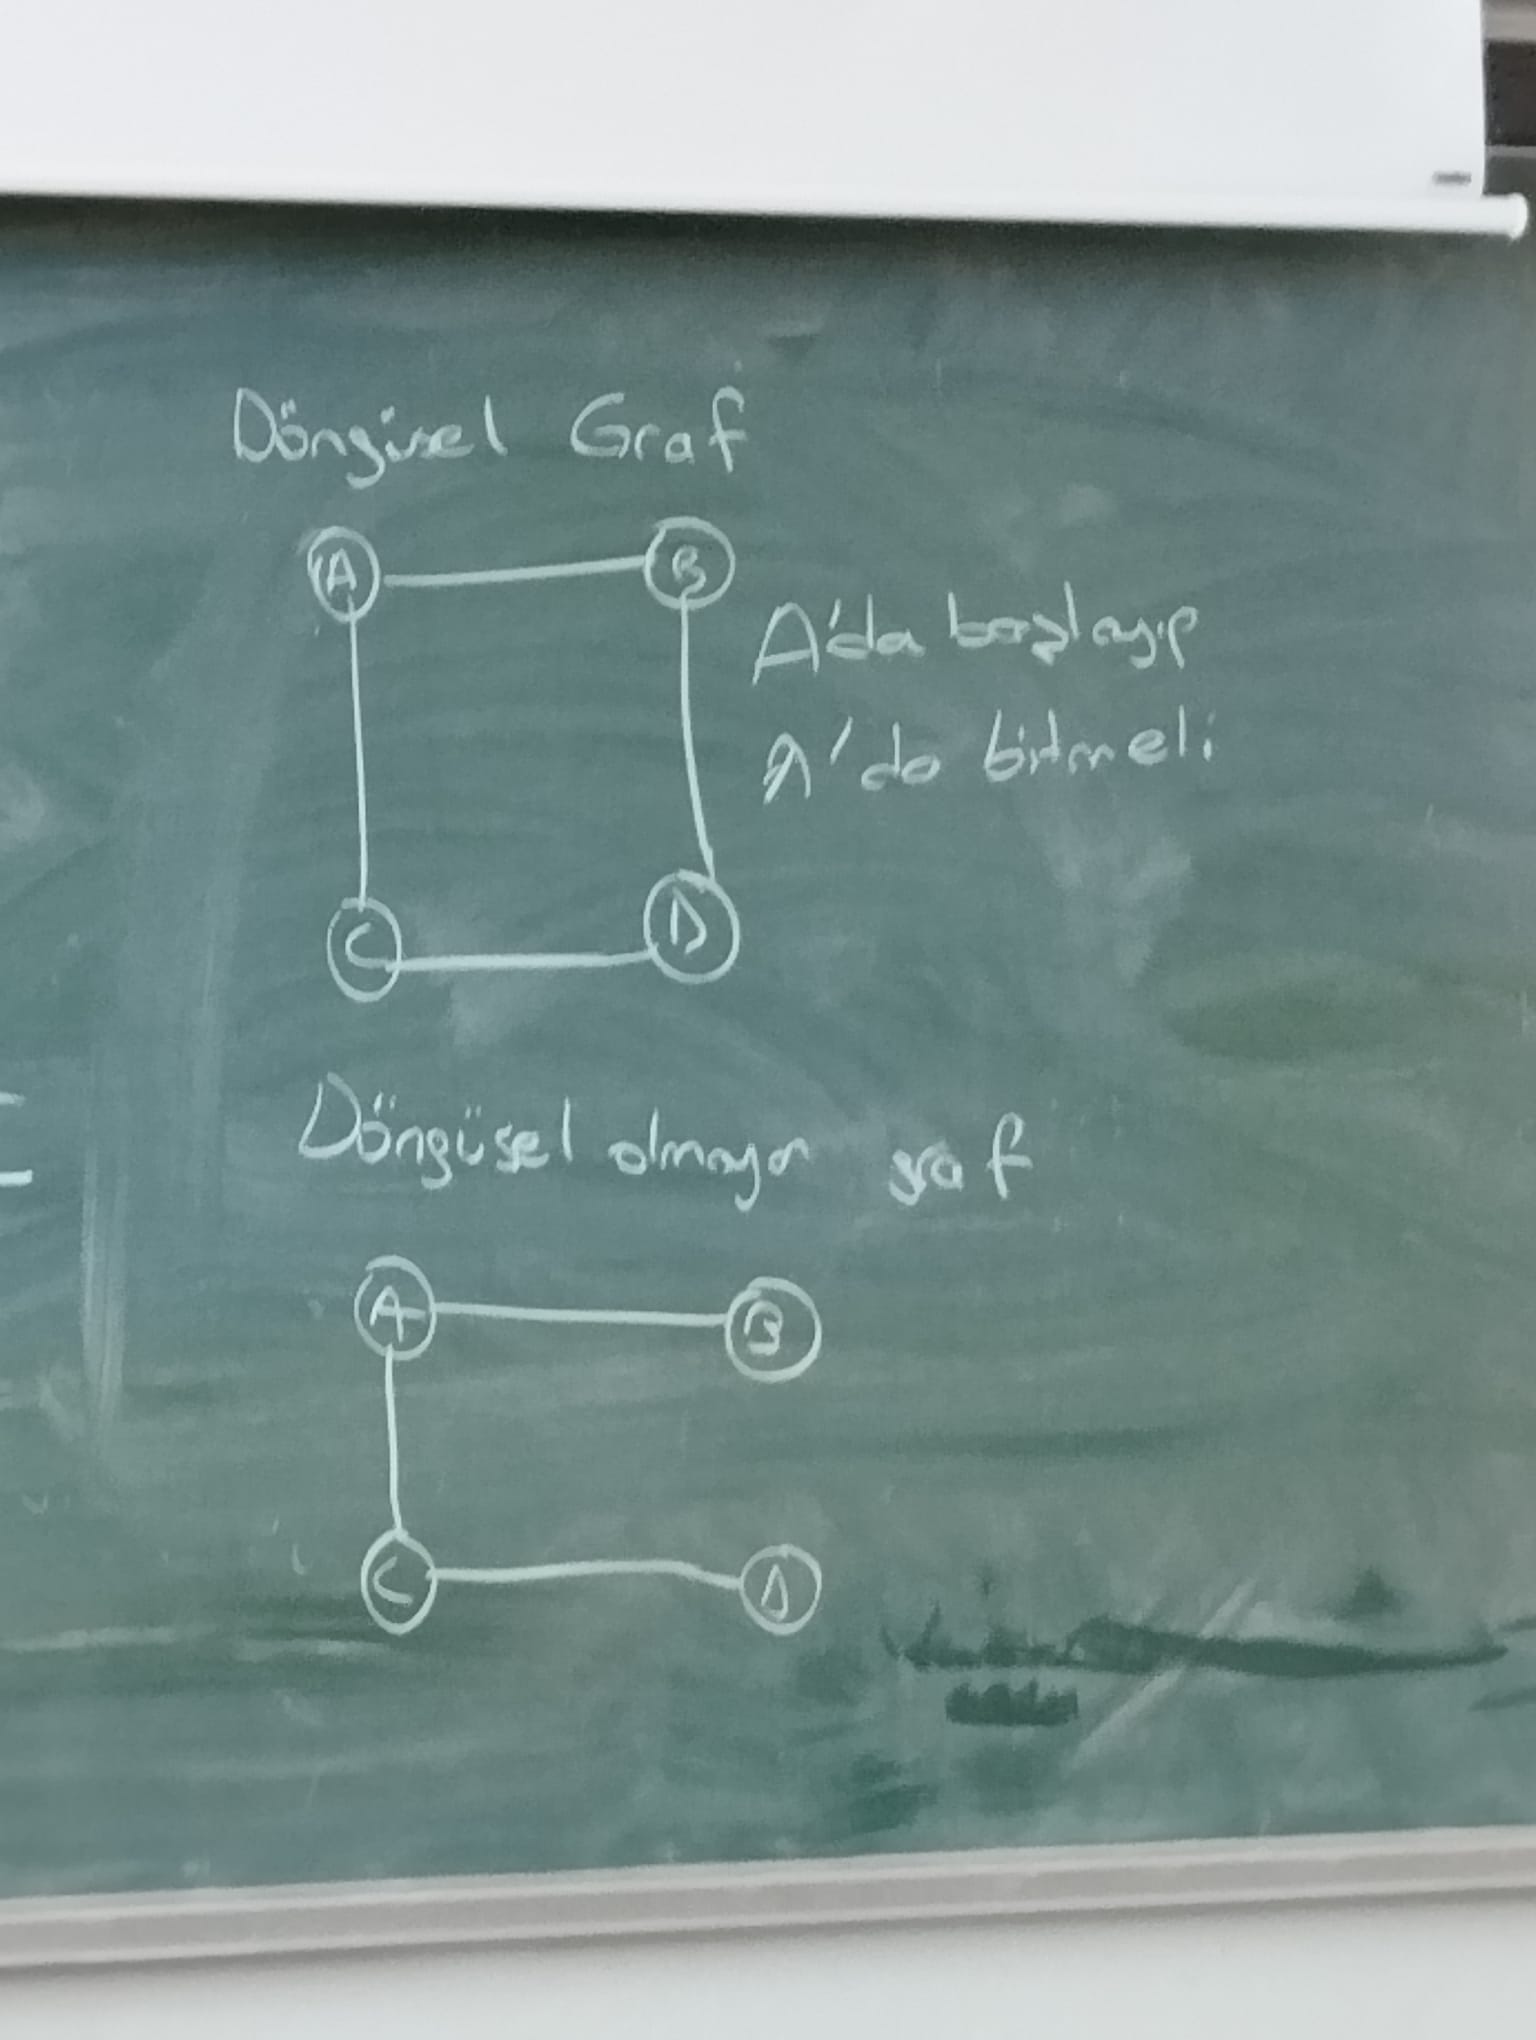 Döngüsel Graf
A
B
A'da başlayıp
A'da bitmeli
C
D
Döngüsel olmayan graf
A
B
C
D